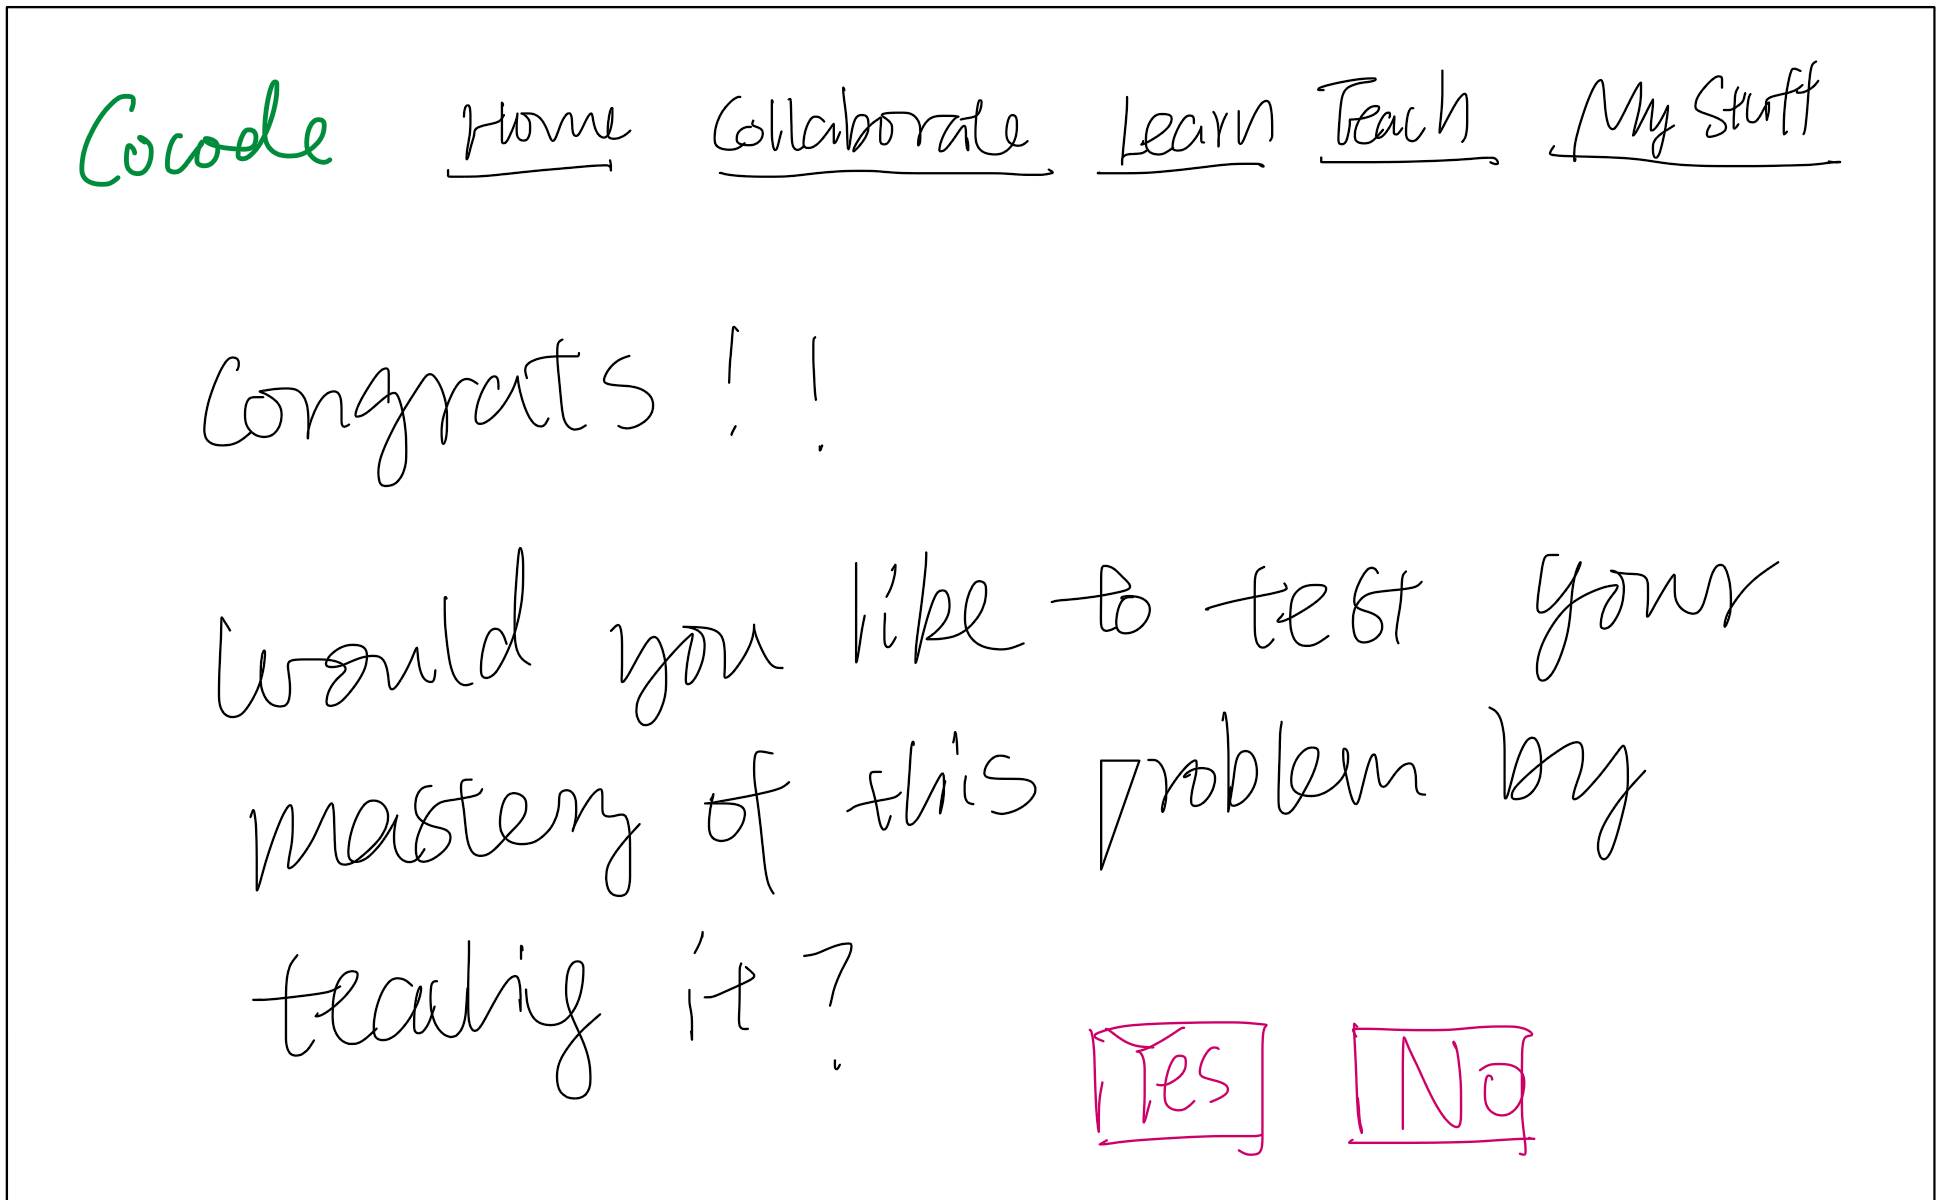 Cocode Home Collaborate Learn Teach My Stuff
Congrats!!
Would you like to test your
mastery of this problem by
teaching it?
Yes No